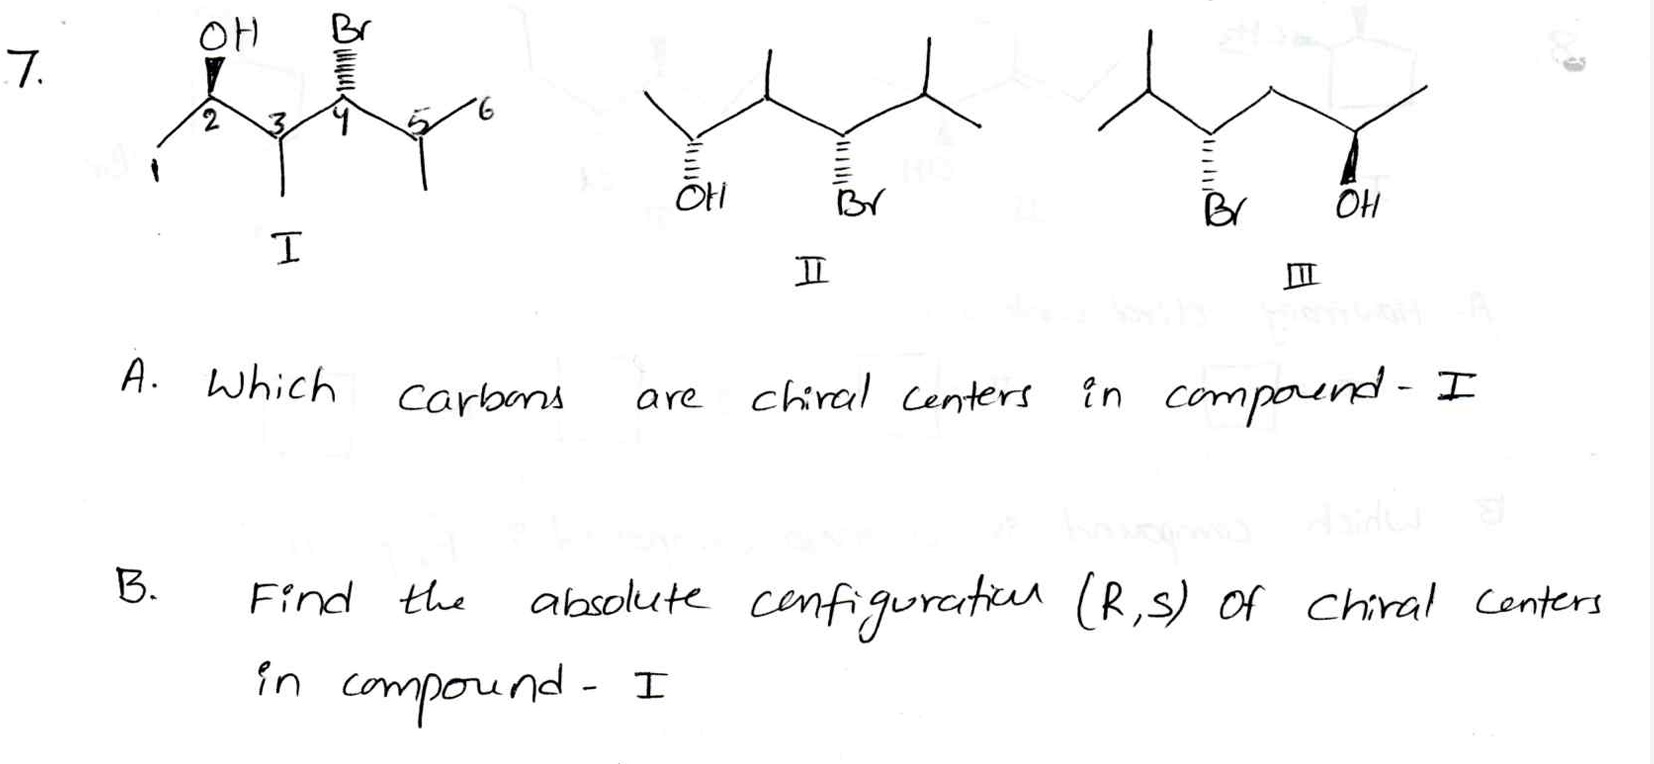 7.
OH Br
1 2 3 4 5 6
OH Br
Br OH
I
II
III
A. Which carbons are chiral centers in compound - I
B. Find the absolute configuration (R,S) of chiral centers
in compound - I